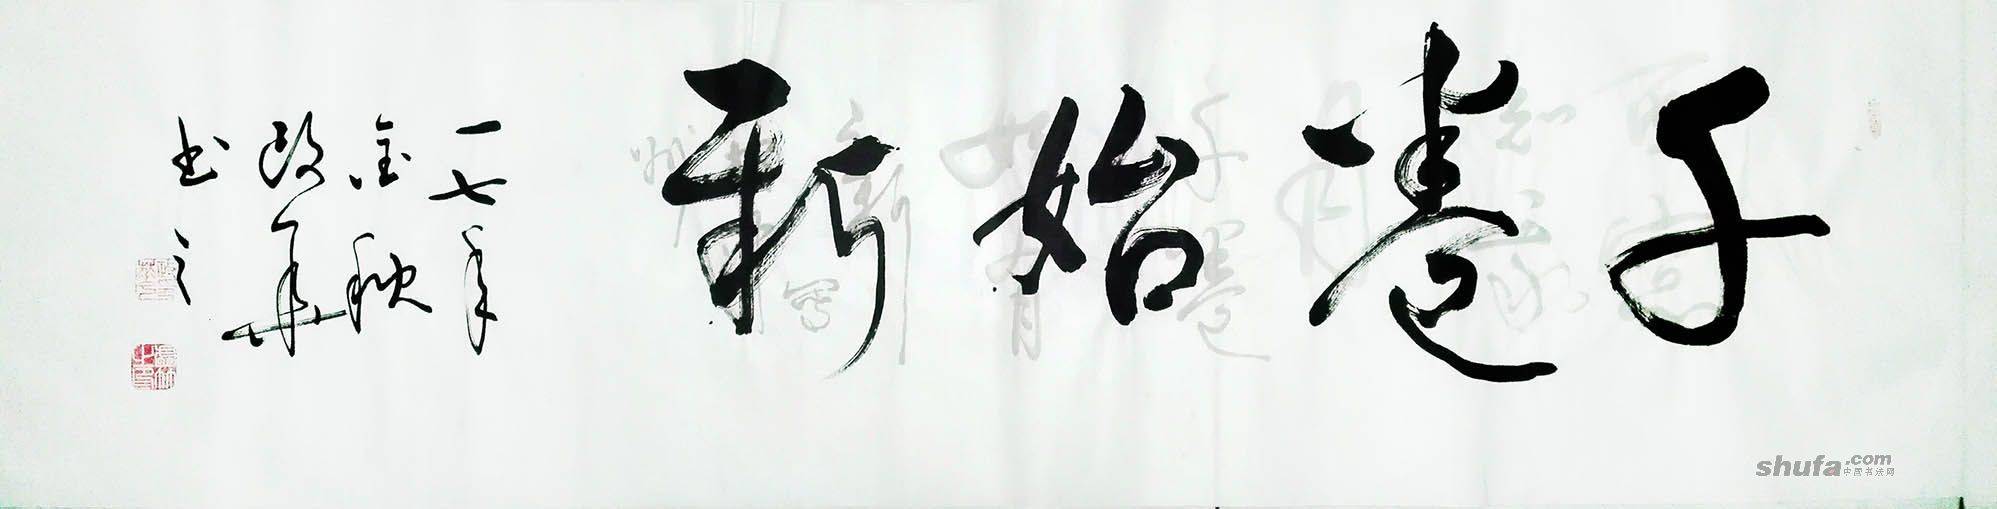 千卷始新
一七年
金秋
政华
书之
shufa.com
中国书法网